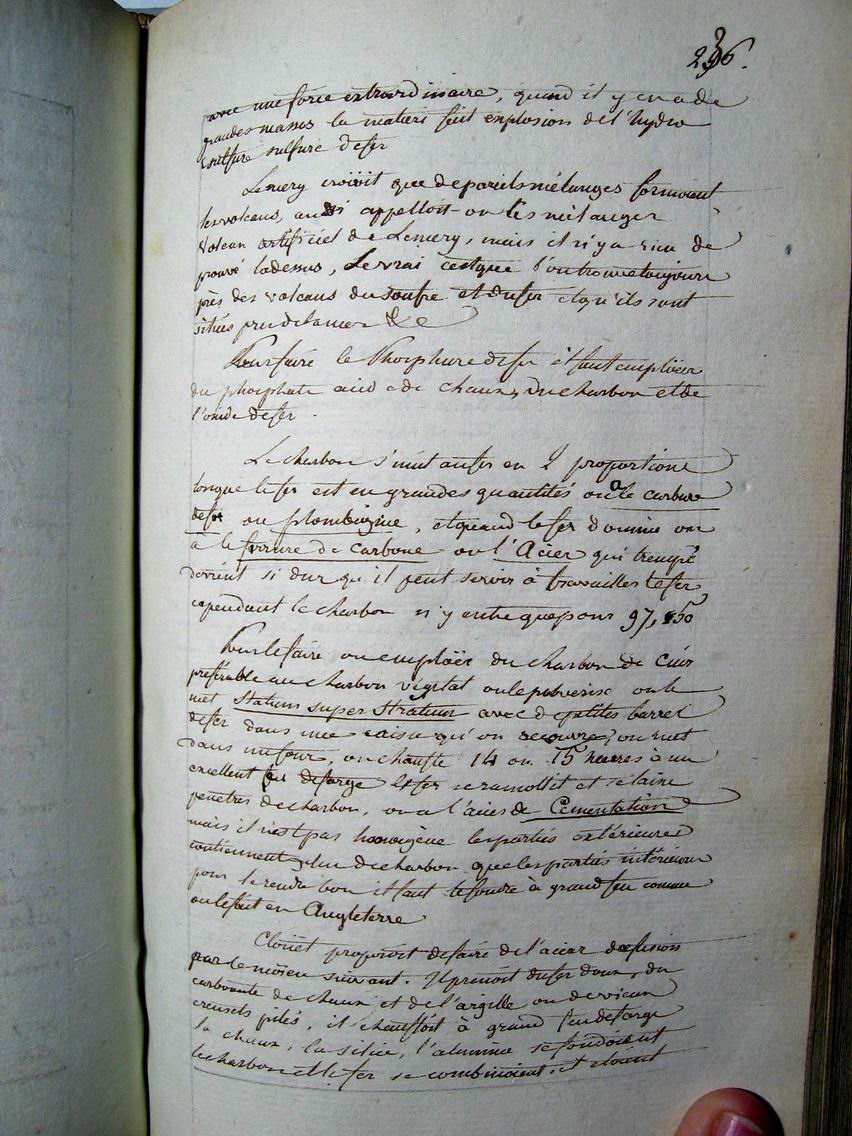 236.
avec une force extraordinaire, quand il y en a de
grandes masses la matiere fait explosion de l'hydro
sulfure sulfuré de fer
Lemery croioit que de pareils mélanges formoient
les volcans, aussi appelloit-on les mélanges
Volcan artificiel de Lemery, mais il n'y a rien de
prouvé ladessus, Le vrai cest que l'on trouve toujours
près des volcans du soufre et du fer et qu'ils sont
situés près de la mer &c
Pour faire le Phosphure de fer il faut emploïer
du phosphate acide de chaux, du charbon et de
l'oxide de fer.
Le charbon s'unit au fer en 2 proportions
lorsque le fer est en grandes quantités on a le carbure
de fer ou plombagine, et quand le fer domine on
a le ferrure de carbone ou l'Acier qui trempé
devient si dur qu'il peut servir à travailler le fer
cependant le charbon n'y entre que pour 97,
Pour le faire on emploïe du charbon de cuir
préférable au charbon végétal on le pulverise on le
met statum super stratum avec de petites barres
de fer dans une caisse qu'on recouvre, on met
dans un four, on chauffe 14 ou 15 heures à un
excellent feu de forge le fer se ramollit et se laisse
penetrer de charbon, on a l'acier de Cementation
mais il n'est pas homogène les parties extérieures
contiennent plus de charbon que les parties intérieures
pour le rendre bon il faut le fondre à grand feu comme
on le fait en Angleterre
Clouet proposoit de faire de l'acier de fusion
par le moïen suivant. Il prenoit du fer doux, du
carbonate de chaux et de l'argille ou de vieux
creusets pilés, il chauffoit à grand feu de forge
la chaux, la silice, l'alumine se fondoient
le charbon et le fer se combinoient, et étoient